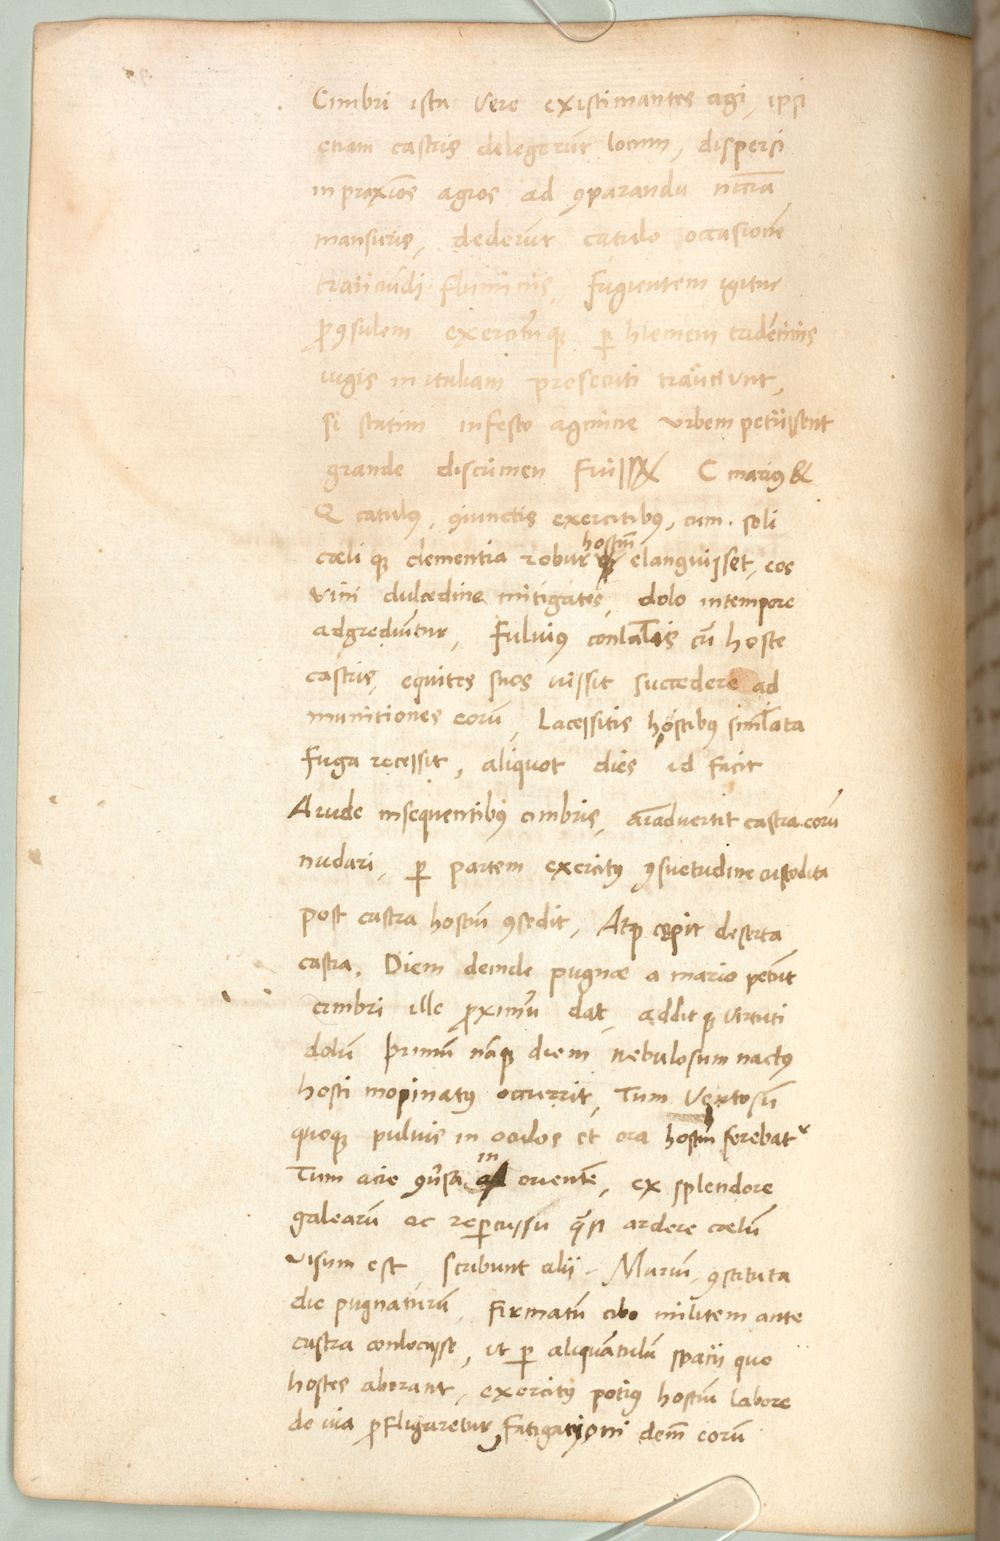 Cimbri ista vere existimantes agi, ipsi
etiam castris delegerūt locum, dispersi
in proxīos agros ad ꝯparandū nccrā
mansuris, dederūt catulo occasionē
traiiciūdi fluminis, fugientem igitur
proꝯsulem exercitū que ꝑ hiemem tridētinis
iugis in italiam prosecuti
si statim infesto agmine urbem petiissent
grande discrimen fuisset C marius &
Q catulus, ꝯiunctis exercitibus, cum soli
cæli que clementia robur hostiū elanguisset, eos
vini dulcedine mitigatos, dolo in tempore
adgrediūtur, Fulvius conlatis cū hoste
castris, equites suos iussit succedere ad
munitiones eorū, Lacessitis hostibus simlata
fuga recessit, aliquot dies id facit
Avide insequentibus cimbris, aīadvertit castra eorū
nudari, ꝑ partem exercitus ꝯsuetudine custodita
post castra hostiū ꝯsedit, Atque cępit deserta
castra, Diem deinde pugnæ a mario petūt
cimbri ille proximū dat, addit que virtuti
dolū primū nāque diem nebulosum nactus
hosti inopinatus occurrit, Tum ventosū
quoque pulvis in oculos et ora hostiū ferebat
Tum acie ꝯv̄sa in orientē, ex splendore
galearū ac reꝑcussu quasi ardere cælū
visum est, scribunt alii Mariū, ꝯstituta
die pugnaturū, firmatū cibo militem ante
castra conlocasse, ut ꝑ aliquātulū spatii quo
hostes aberant, exercitus potius hostiū labore
de via profligaretur, Fatigationi demū eorū